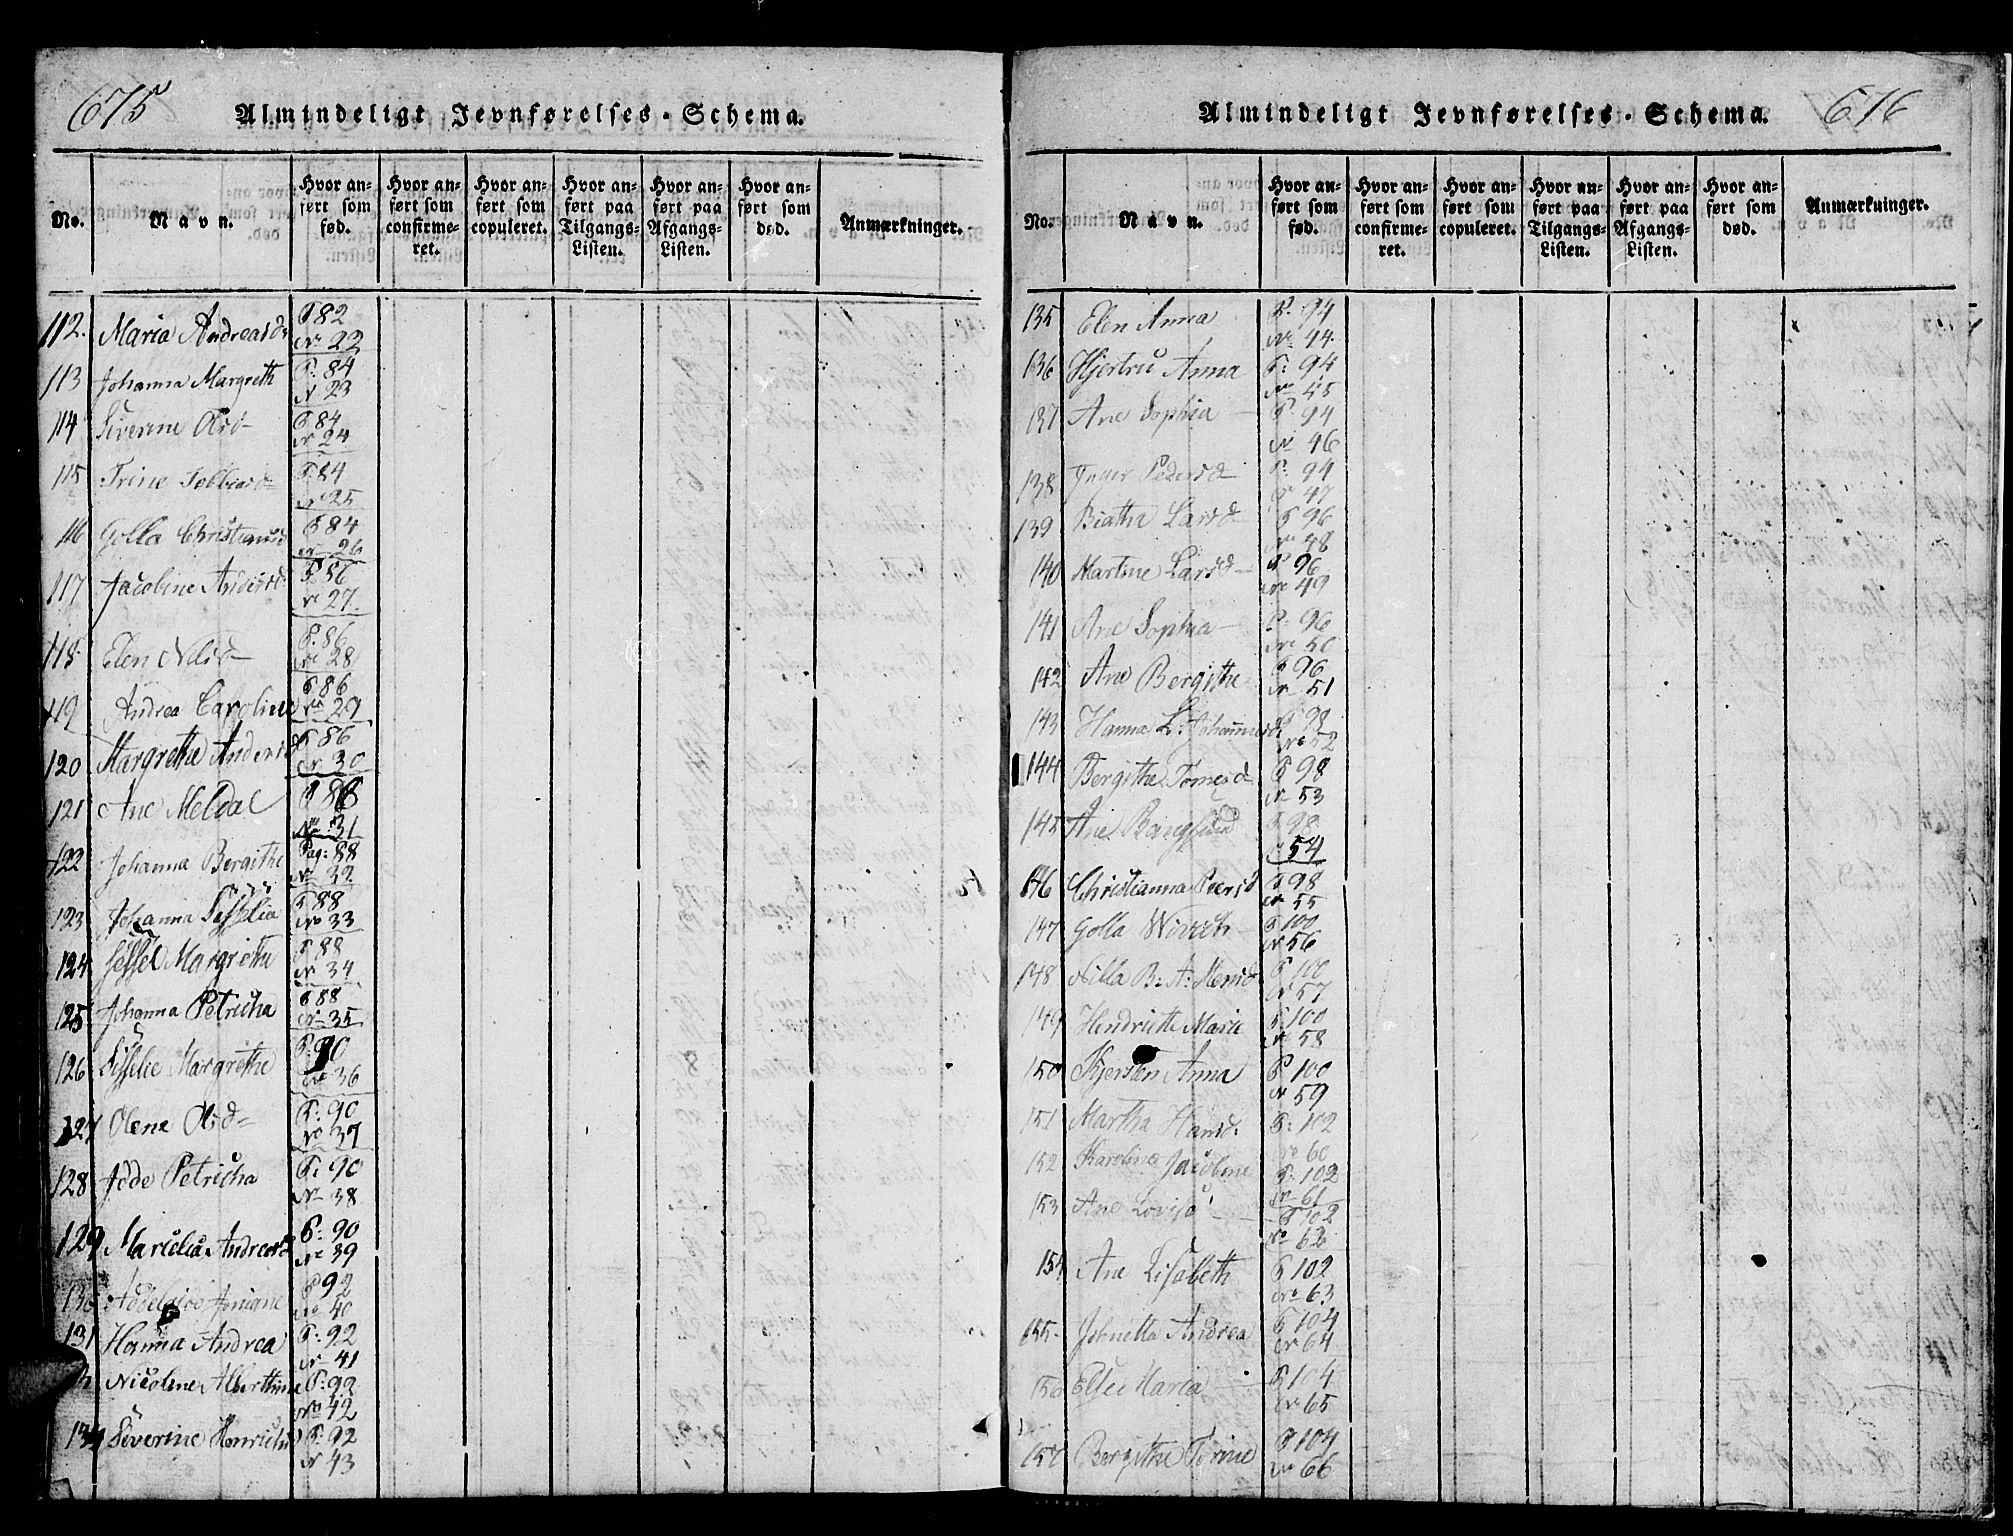 675
Almindeligt Jevnførelses-Schema.
No. Navn. Hvor anført som fød. Hvor anført som confirmeret. Hvor anført som copuleret. Hvor anført paa Tilgangs-Listen. Hvor anført paa Afgangs-Listen. Hvor anført som død. Anmærkninger.
112. Maria Andreasd: P 82
No 22
113 Johanna Margreth P: 84
N 23
114 Severine Olsd- P 84
No 24
115 Trine P: 84
No 25
116 Golla P 84
No 26
117 Jacobine Andersd P 86
No 27
118. Elen Nelsd- P. 86
No 28
119 Andrea Caroline P 86
No 29
120 Margrethe Andersd P 86
No 30
121 Ane Meldal P 86
No: 31
122 Johanna Bergithe Pag: 88
No 32
123 Johanna P 88
No 33
124 Sessel Margrethe P 88
No 34
125 Johanna Petricha P 88
No 35
126 Sisselie Margrethe P: 90
No 36
127 Olene Olsd- P: 90
No 37
128 Jode Petricha P: 90
No 38
129 Andreasd P: 90
No 39
130 P 92
No 40
131 Hanna Andrea P: 92
No 41
Nicoline Alberthine P: 92
No 42
134 Severine P: 92
N 43
616
Almindeligt Jevnførelses-Schema.
No. Navn. Hvor anført som fød. Hvor anført som confirmeret. Hvor anført som copuleret. Hvor anført paa Tilgangs-Listen. Hvor anført paa Afgangs-Listen. Hvor anført som død. Anmærkninger.
135 Elen Anna P. 94
No 44.
136 Hjertru Anna P: 94
No 45
137 Ane Sophia - P. 94
No 46
138 Inger Pedersd P. 94
No 47
139 Beathe Larsd- P 96
No 48
140 Martine Larsd- P 96
No 49
141 Ane Sophia- P: 96
No 50
142 Ane Bergithe P 96
No 51
143 Hanna L: P 98
No 52
144 Bergithe P 98
No 53
145 Ane P 98
54
146 Christianna Peersd P 98
No 55
147 Golla P 100
No 56
148 Nilla B: A: P 100
No 57
149 Hendriette Marie P: 100
No 58
150 Kjersten Anna P 100
No 59
151 Martha Hansd. P: 102
No 60
152 Karoline Jacobine P: 102
No 61
153 Ane Lovise - P 102
No 62
154 Ane Lisabeth P 102
No 63
155. Johnetta Andrea P 104
No 64
156 Else Maria P 104
No 65
157 Bergithe Torine P 104
No 66